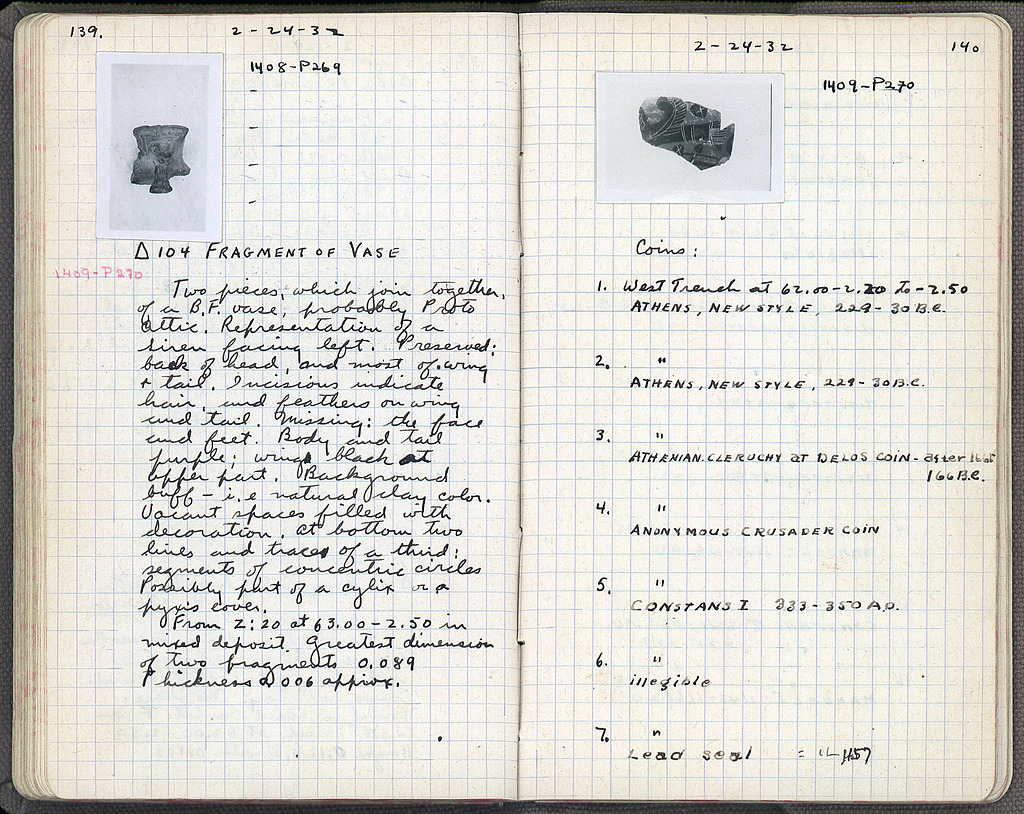 139.
2-24-32
1408-P269
Δ 104 FRAGMENT OF VASE
1409-P270
Two pieces, which join together,
of a B.F. vase, probably Proto
Attic. Representation of a
siren facing left. Preserved:
back of head, and most of wing
+ tail. Incisions indicate
hair, and feathers on wing
and tail. Missing: the face
and feet. Body and tail
purple; wing black at
upper part. Background
buff - i.e natural clay color.
Vacant spaces filled with
decoration. At bottom two
lines and traces of a third;
segments of concentric circles
Possibly part of a cylix or a
pyxis cover.
From 2:20 at 63.00-2.50 in
mixed deposit. Greatest dimension
of two fragments 0.089
Thickness 0.006 approx.
2-24-32
140
1409-P270
Coins:
1. West Trench at 62.00-2.20 to -2.50
ATHENS, NEW STYLE, 229-30 B.C.
2. "
ATHENS, NEW STYLE, 229-30 B.C.
3. "
ATHENIAN CLERUCHY at DELOS COIN - after
166 B.C.
4. "
ANONYMOUS CRUSADER COIN
5. "
CONSTANS I 333-350 A.D.
6. "
illegible
7. "
Lead seal = IL 457